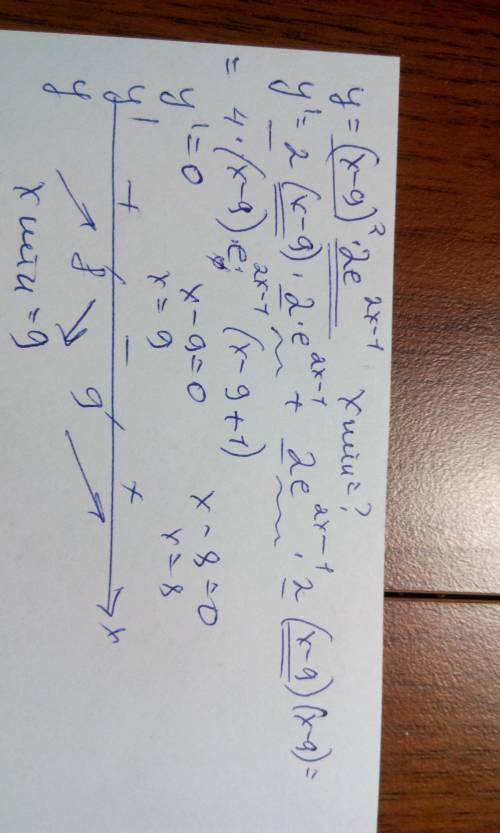 y = (x-9)²·2e^(2x-1)   x min = ?
y' = 2(x-9)·2·e^(2x-1) + 2e^(2x-1)·2(x-9)(x-9) =
= 4·(x-9)·e^(2x-1) (x-9+1)
y' = 0   x-9=0   x-8=0
x=9   x=8
y' + - + x
y 8 9
x min = 9